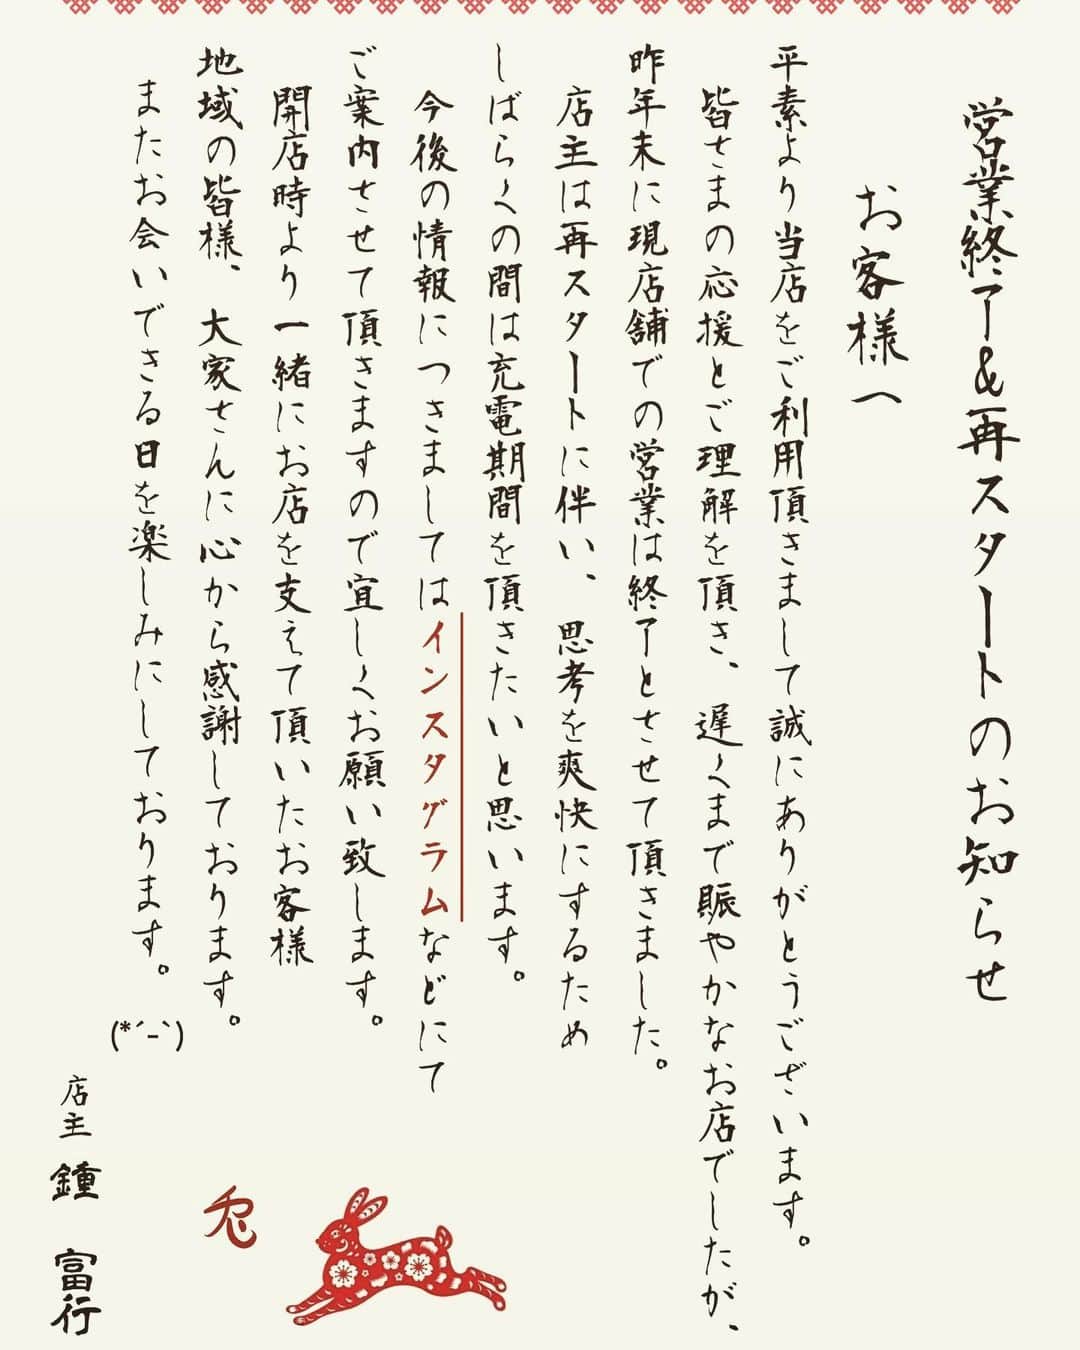 営業終了&再スタートのお知らせ
お客様へ
平素より当店をご利用頂きまして誠にありがとうございます。
皆さまの応援とご理解を頂き、遅くまで賑やかなお店でしたが、
昨年末に現店舗での営業は終了とさせて頂きました。
店主は再スタートに伴い、思考を爽快にするため
しばらくの間は充電期間を頂きたいと思います。
今後の情報につきましてはインスタグラムなどにて
ご案内させて頂きますので宜しくお願い致します。
開店時より一緒にお店を支えて頂いたお客様
地域の皆様、大家さんに心から感謝しております。
またお会いできる日を楽しみにしております。
(*´-`)
店主 鍾 富行
兔